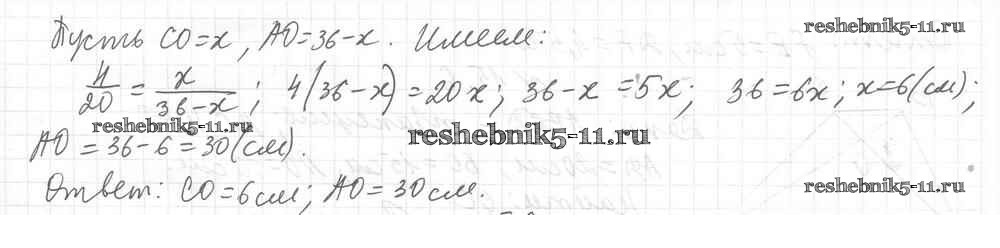 reshebnik5-11.ru
Пусть CO = x, AO = 36 - x. Имеем:
4/20 = x/(36 - x); 4(36 - x) = 20x; 36 - x = 5x; 36 = 6x; x = 6(см);
reshebnik5-11.ru
AO = 36 - 6 = 30(см).
reshebnik5-11.ru
Ответ: CO = 6 см; AO = 30 см.
reshebnik5-11.ru